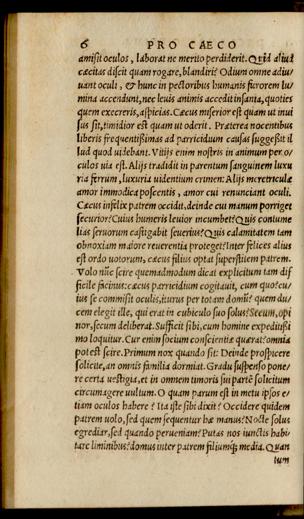 6 PRO CAECO
amisit oculos, laborat ne merito perdiderit. Quid aliud
cæcitas discit quam rogare, blandiri? Odium omne adiu/
uant oculi, & hunc in pectoribus humanis furorem lu/
mina accendunt, nec leuis animis accedit insania, quoties
quem execreris, aspicias. Cæcus miserior est quam ut inui
sus sit, timidior est quam ut oderit. Præterea nocentibus
liberis frequentissimas ad parricidium causas suggessit il
lud quod uidebant. Vitijs enim nostris in animum per o/
culos uia est. Alijs tradidit in parentum sanguinem luxu
ria ferrum, luxuria uidentium crimen: Alijs meretriculæ
amor immodica poscentis, amor cui renunciant oculi.
Cæcus infelix patrem occidit, deinde cui manum porriget
securior? Cuius humeris leuior incumbet? Quis contume
lias seruorum castigabit seuerius? Quis calamitatem tam
obnoxiam maiore reuerentia proteget? Inter felices alius
est ordo uotorum, cæcus filius optat superstitem patrem.
Volo nũc scire quemadmodum dicat explicitum tam dif
ficile facinus: cæcus parricidium cogitauit, cum quo? cu/
ius se commisit oculis, iturus per totam domũ? quem du/
cem elegit ille, qui erat in cubiculo suo solus? Secum, opi
nor, secum deliberat. Sufficit sibi, cum homine expeditissi
mo loquitur. Cur enim socium conscientiæ quærat? omnia
potest scire. Primum nox quando sit: Deinde prospicere
solicite, an omnis familia dormiat. Gradu suspenso pone/
re certa uestigia, et in omnem timoris sui partē solicitum
circumagere uultum. O quam parum est in metu ipsos e/
tiam oculos habere? Ita iste sibi dixit? Occidere quidem
patrem uolo, sed quem sequentur hæ manus? Nocte solus
egrediar, sed quando perueniam? Putas nos iunctis habi
tare liminibus? domus inter patrem filiumq́; media. Quan
tum